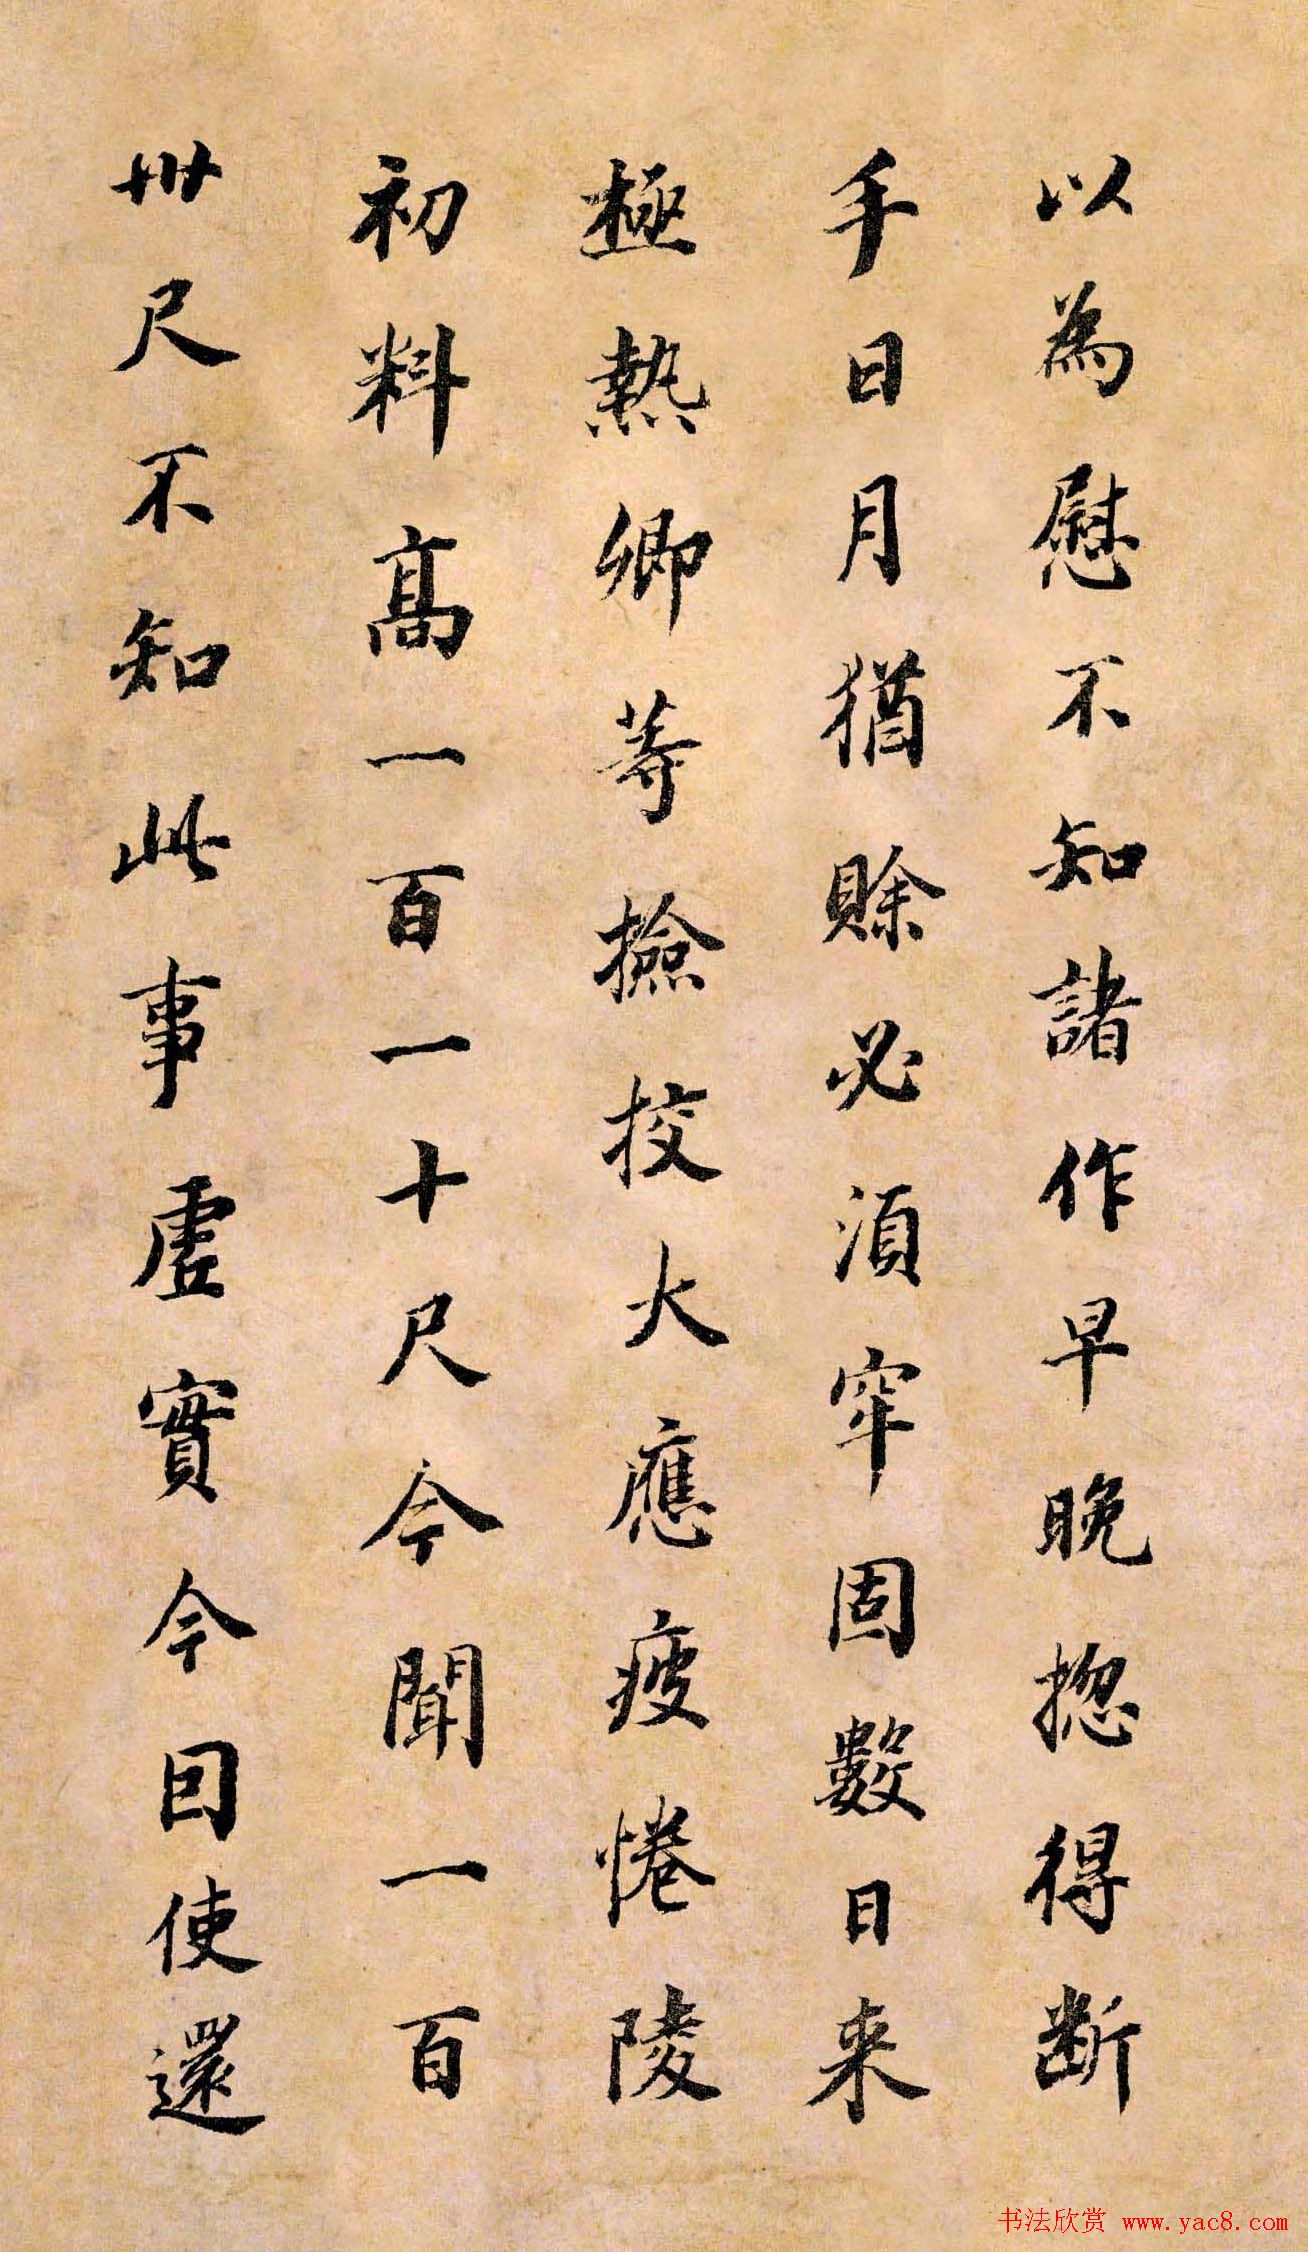 以為慰不知諸作早晚揔得断
手日月猶賒必湏窂固數日来
極熱卿䓁撿挍大應疲惓陵
初料髙一百一十尺今聞一百
卅尺不知此事虗實今因使還
书法欣赏 www.yac8.com